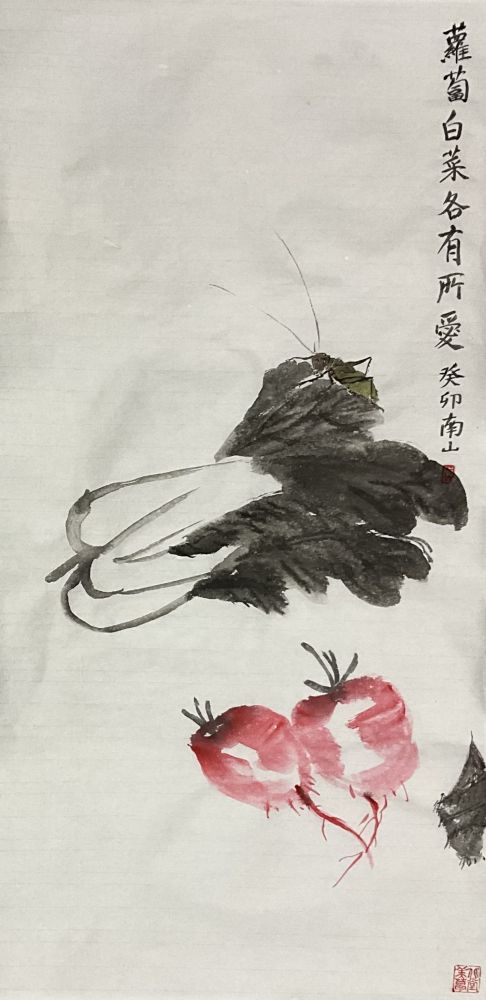 蘿蔔白菜各有所愛
癸卯南山